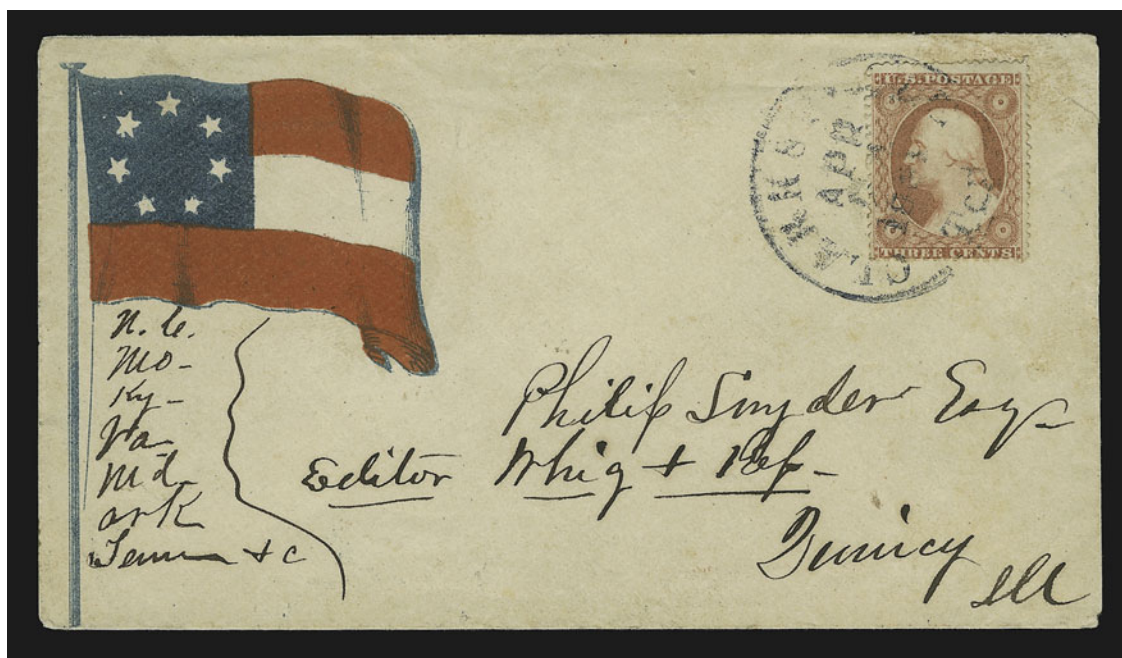 U.S. POSTAGE
THREE CENTS
CLARKS
APR
N. C.
Mo-
Ky-
Va-
Md-
Ark
Tenn + c
Philip Snyder Esq
Editor Whig + Rep-
Quincy
Ill